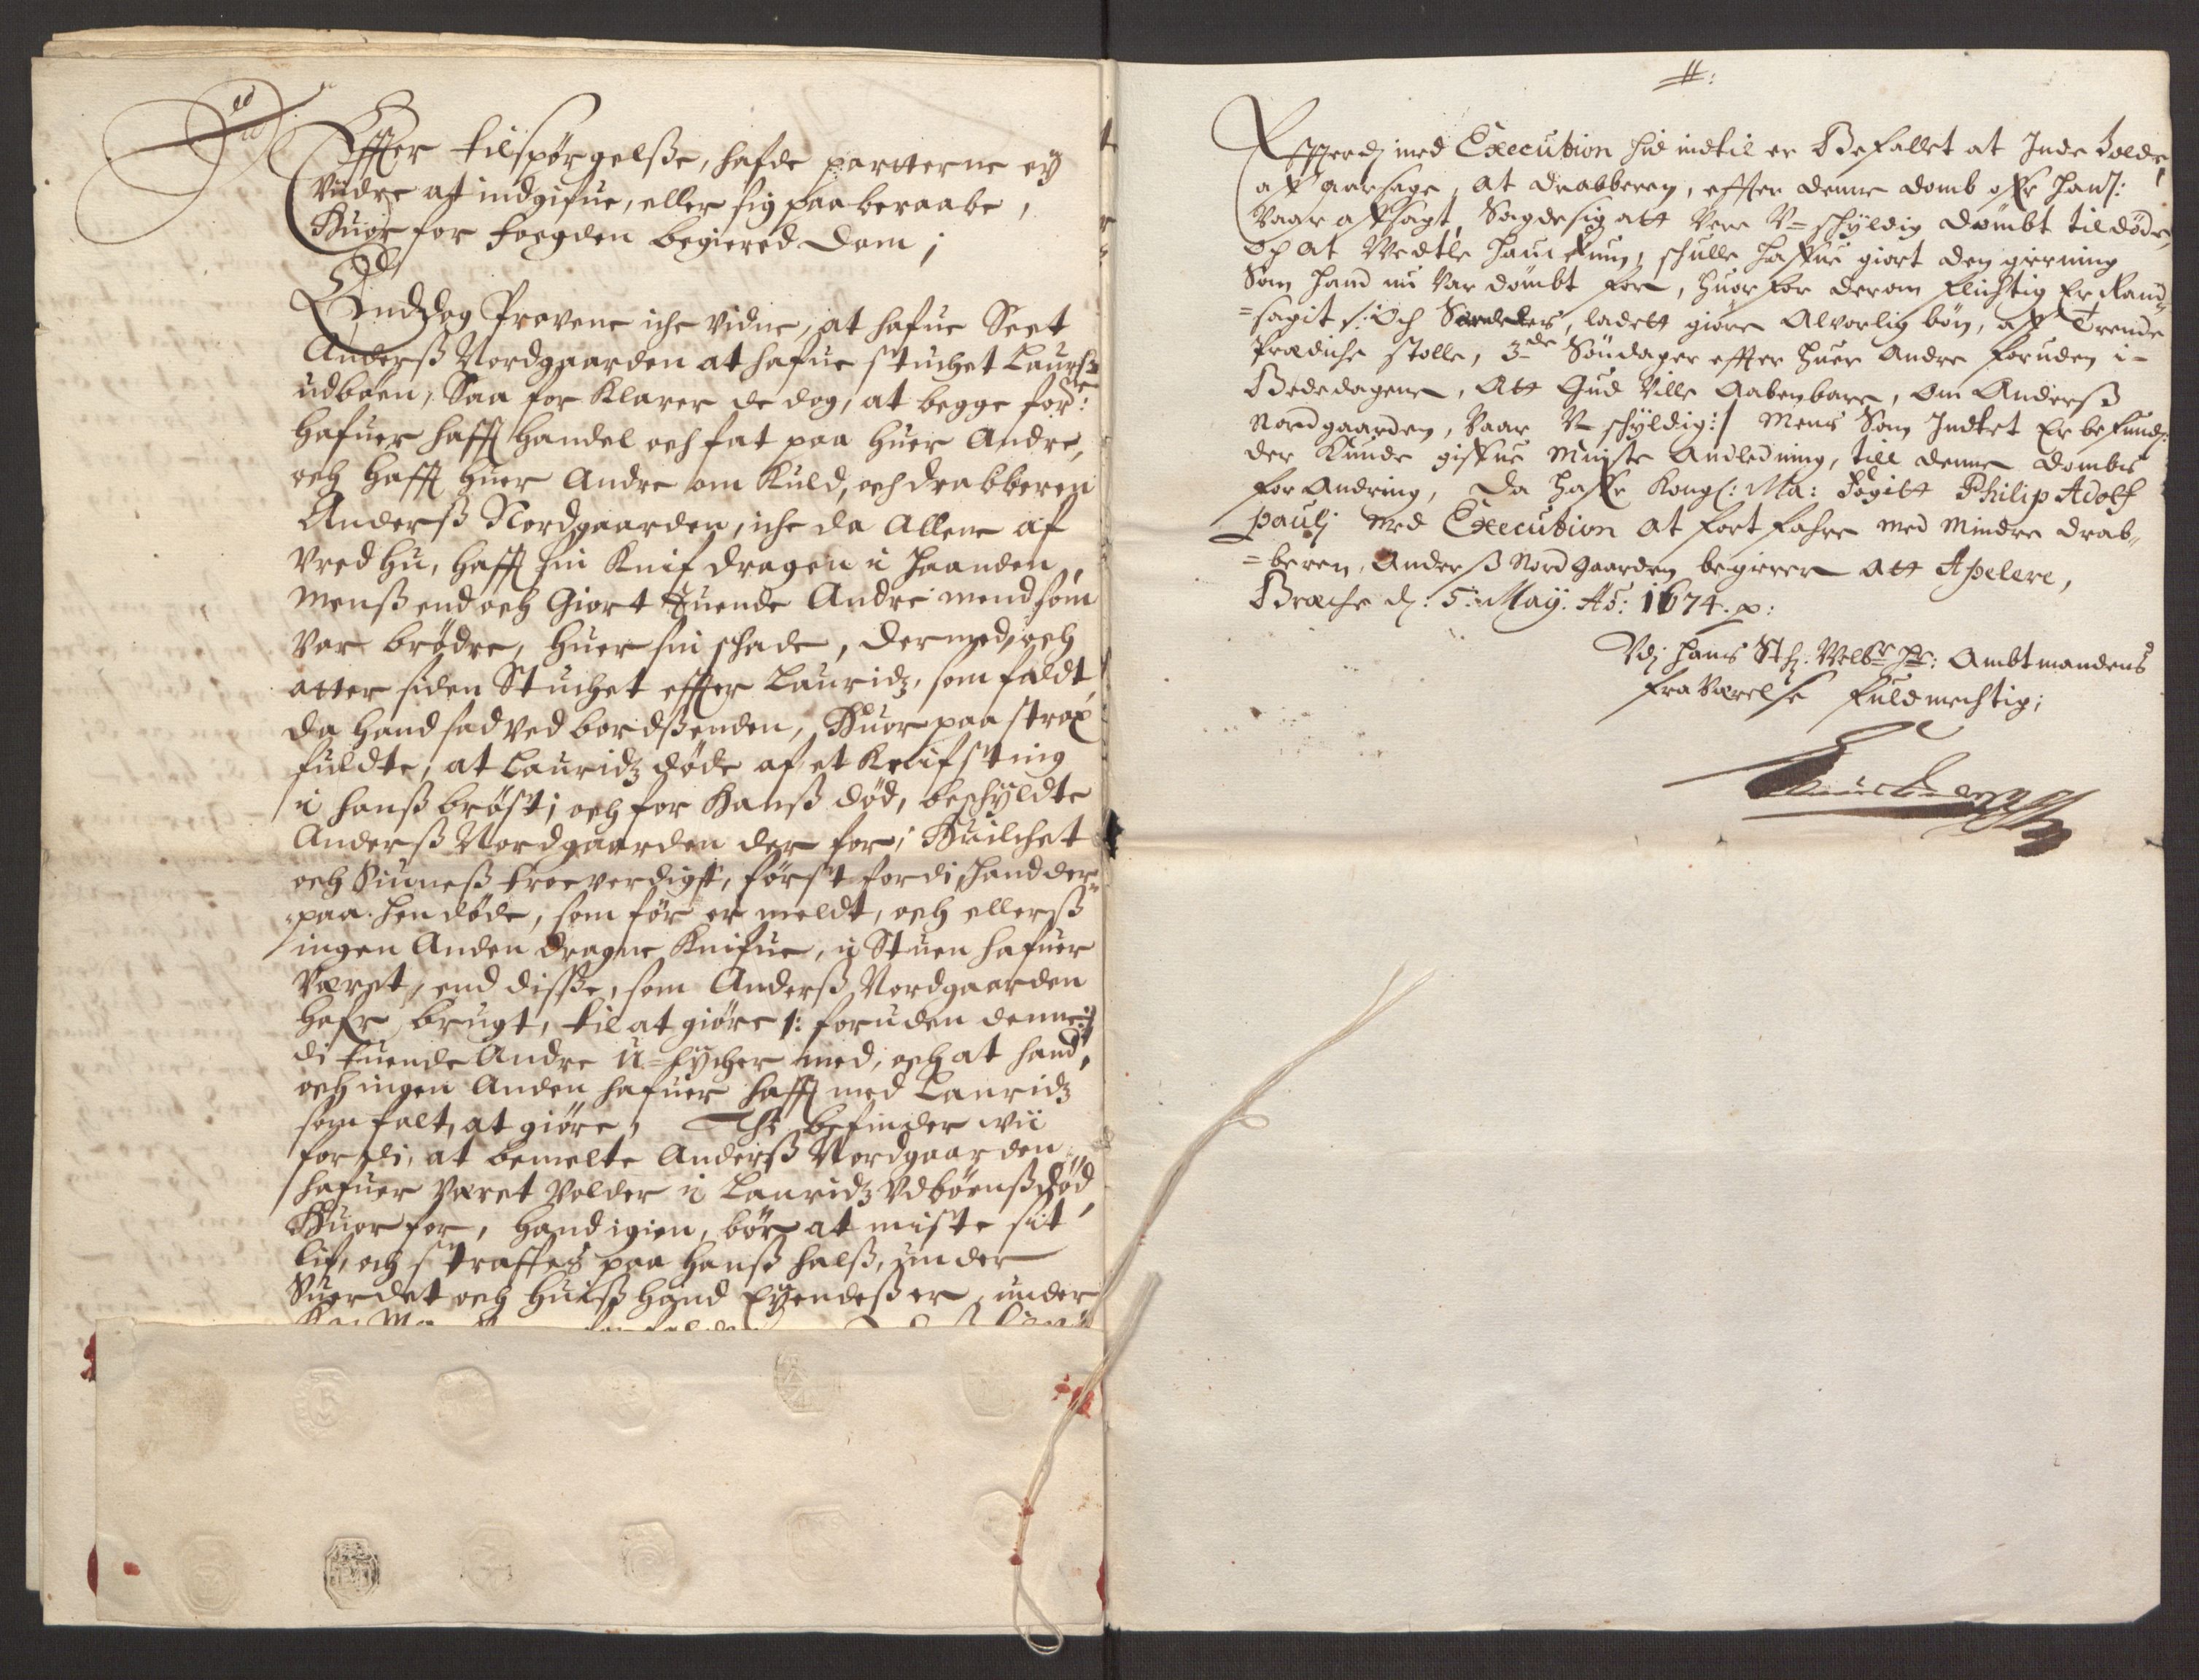 Effter tilspørgelsße, hafde partterne ey
viidre at indgifue, eller sig paaberaabe,
Huor for foegden begiered dom;
Endog Provene iche vidne, at hafue Seet
Anderß Nordgaarden at hafue stuchet Laurß
udbøen, Saa for Klarer de dog, at begge ford:
hafuer hafft handel och fat paa huer Andre,
och hafft huer Andre om Kuld, och drabberen
Anderß Nordgaarden, iche da Allene af
vred hu, hafft sin Knif dragen i haanden,
menß end och Giort tuende Andre mend som
var brødre, huer sin schade, dermed, och
atter siden Stuchet effter Lauridz, som faldt
da hand sad ved bordßenden, Huor paa strax
fuldte, at Lauridz døde af et Knifsting
i hanß brøst; och for hanß død, beschyldte
Anderß Nordgaarden der for; Huilchet
och Siuneß troeverdigst, først fordi hand der
paa hen døde, som før er meldt, och ellerß
ingen Anden dragne Knifue, i Stuen hafuer
været, end disße, som Anderß Nordgaarden
hafr brugt, til at giøre /: foruden denne :/
di tuende Andre u=lycher med, och at hand,
och ingen Anden hafuer hafft med Lauridz
som falt, at giøre, Thi befinder wii
fordi, at bemelte Anderß Nordgaarden
hafuer været volder i Lauridz Vdbøenß død
Huor for, hand igien, bør at miste sit
lif, och straffes paa hanß halß, under
Suerdet och huiß hand Eyendeß er, under

#:
Efftterdj med Execution hid indtil er Befallet at Inde holde,
aff aarsage, at drabberen, effter denne domb offr hanß:
vaar affsagt, Sagde sig att vere V=schyldig dømbt till døde,
och at Vedtle Hauchun, schulle haffue giort den gierning
Som hand nu var dømbt for, huor for derom flichtig Er Rand=
=sagit /: Och Særdeles, ladett giøre Alvorlig bøn, aff Trende
Prædiche stolle, 3de Søndager effter huer Andre foruden i=
Bededagene, Att Gud ville Aabenbare, om Anderß
Nordgaarden, vaar V=schyldig :/ Mens Som Indtet Er befunden
der Kunde giffue Minste Andledning, till denne dombs
for Andring, Da haffr Kongl: Ma: Fogitt Philip Adolf
Paulj med Execution at fort fahre med Mindre drab=
=beren, Anderß Nordgaarden begierer att Apelere,
Brache d: 5: May: Ao: 1674. p:
Vdj Hans Stf: Velbr: Hr: Ambtmandens
fra Værelse fuldmechtig;